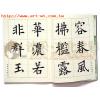 http://www.art-win.com.tw
容春風
拂檻露
華濃若
非群玉